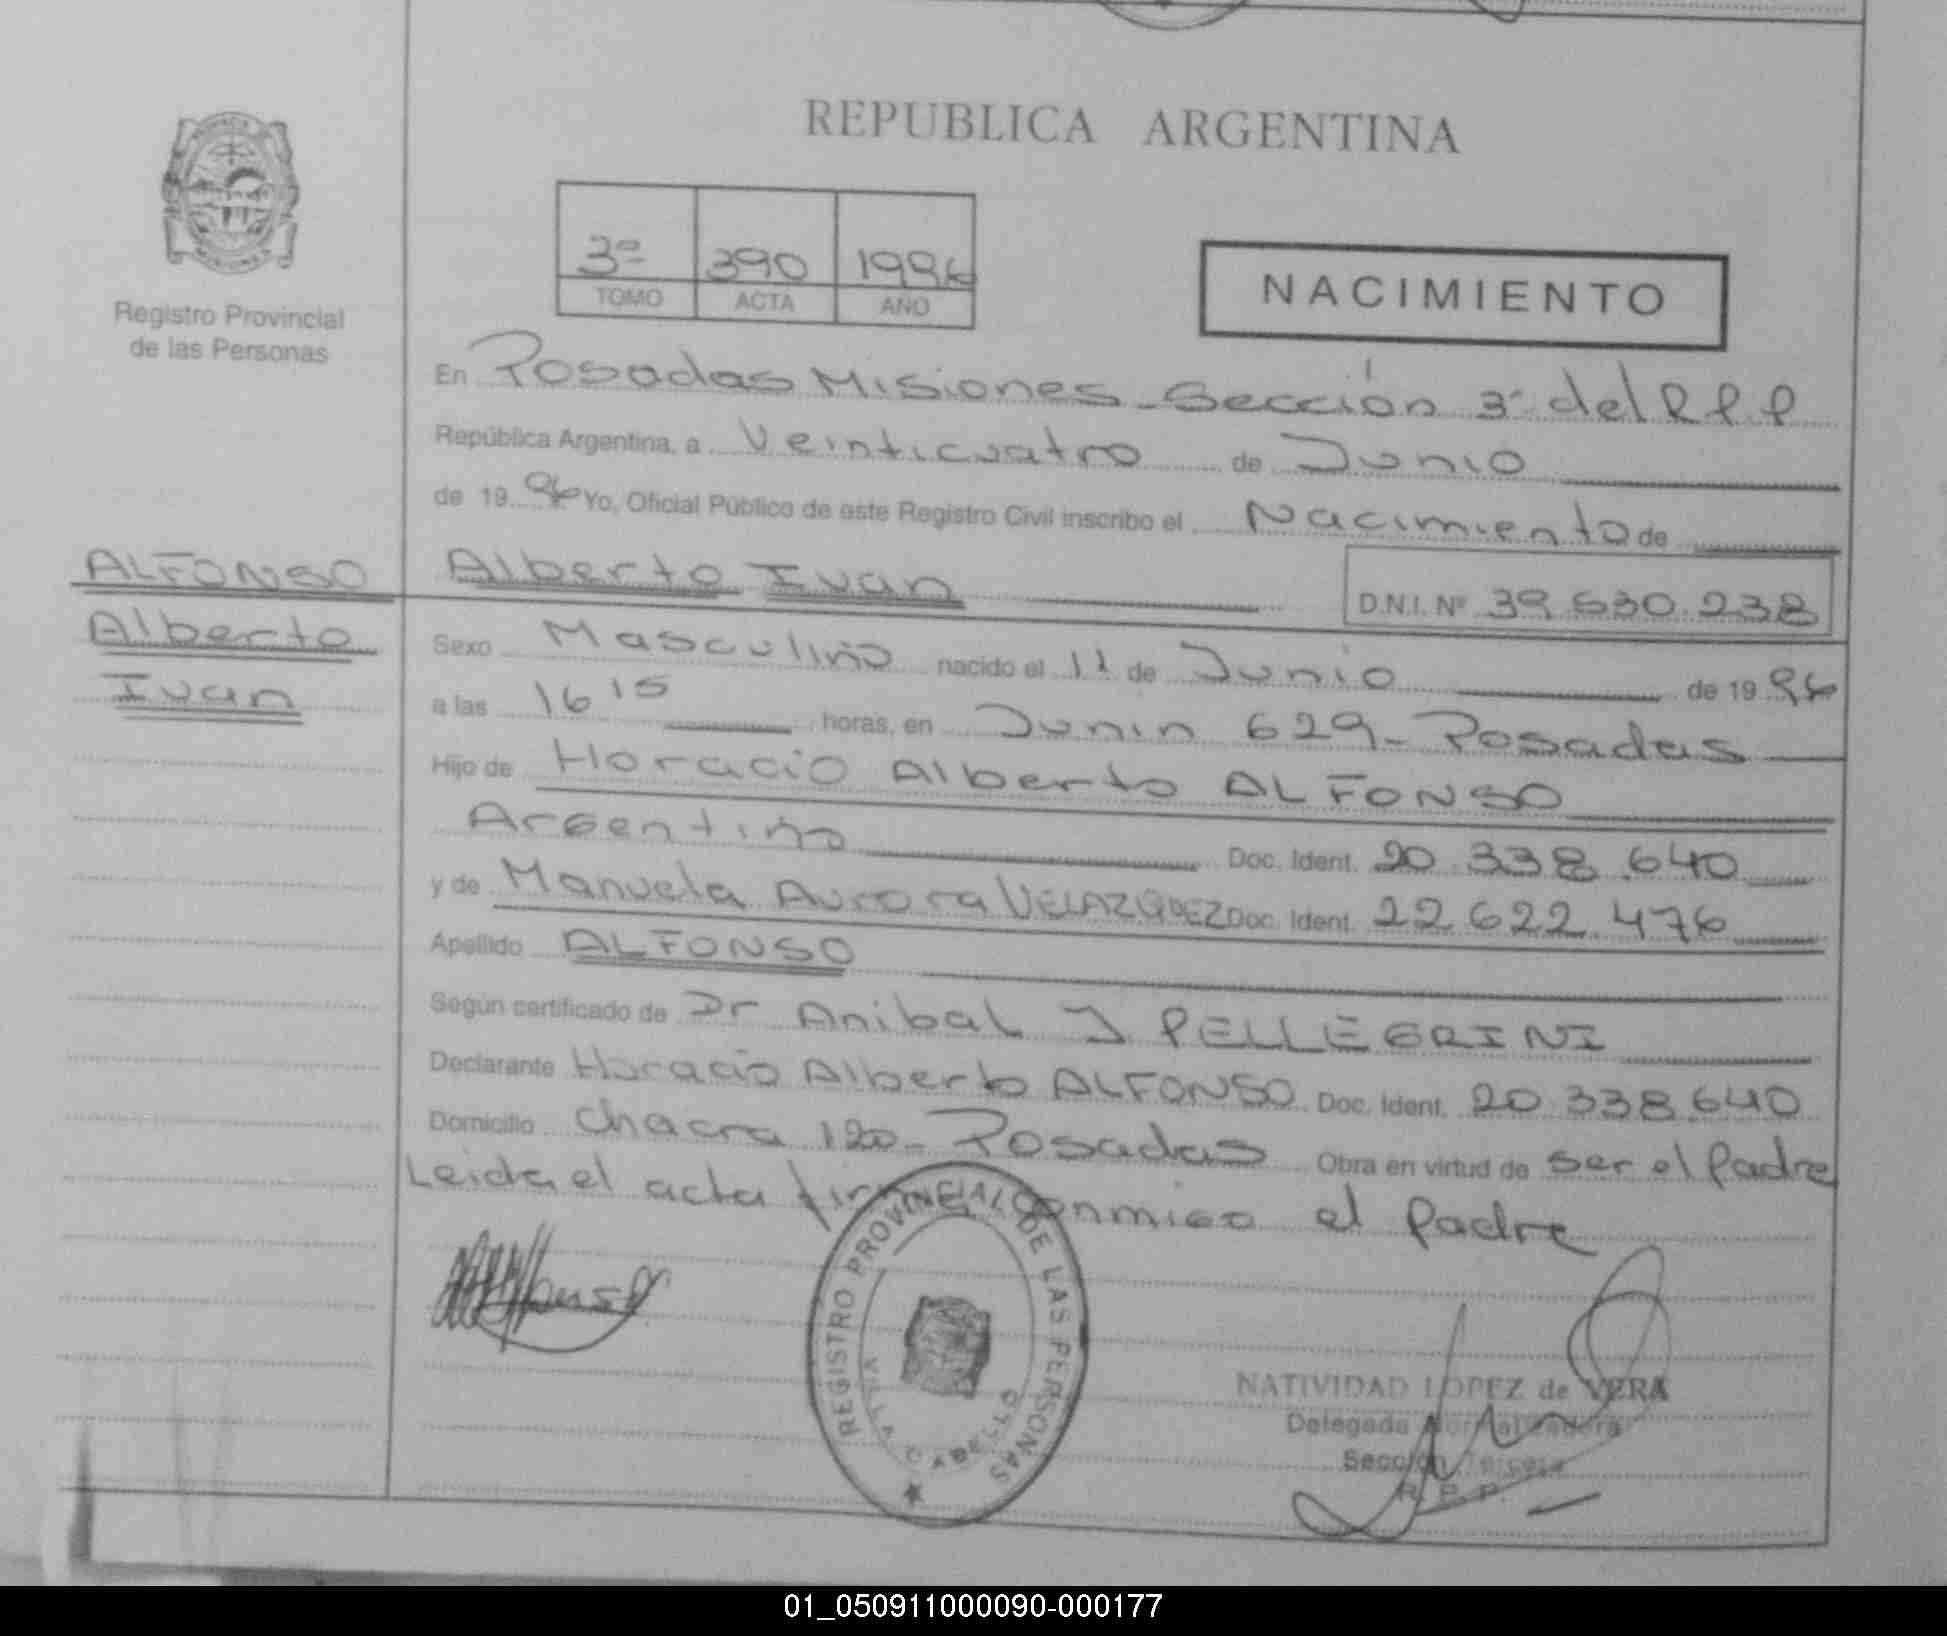 REPUBLICA ARGENTINA
3º 390 1996
TOMO ACTA AÑO
NACIMIENTO
Registro Provincial
de las Personas
En Posadas Misiones - Sección 3ª del R P P
República Argentina, a Veinticuatro de Junio
de 19 96 Yo, Oficial Público de este Registro Civil inscribo el Nacimiento de
ALFONSO
Alberto
Ivan
Alberto Ivan D.N.I. Nº 39.630.238
Sexo Masculino nacido el 11 de Junio de 19 96
a las 16 15 horas, en Junin 629 - Posadas
Hijo de Horacio Alberto ALFONSO
Argentino Doc. Ident. 20.338.640
y de Manuela Aurora VELAZQUEZ Doc. Ident. 22.622.476
Apellido ALFONSO
Según certificado de Dr Anibal J PELLEGRINI
Declarante Horacio Alberto ALFONSO Doc. Ident. 20 338 640
Domicilio Chacra 120 - Posadas Obra en virtud de ser el Padre
Leida el acta firma conmigo el Padre
REGISTRO PROVINCIAL DE LAS PERSONAS
VILLA CABELLO
NATIVIDAD LOPEZ de VERA
Delegada Normalizadora
Sección Tercera
R. P. P.
01_050911000090-000177